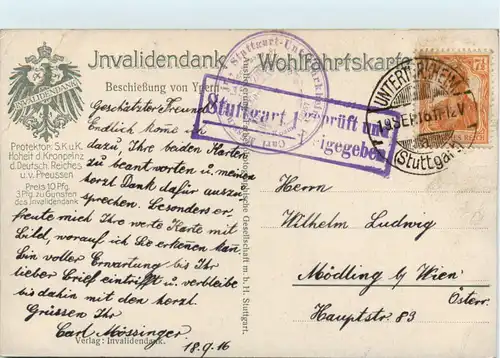 Jnvalidendank Wohlfahrtskarte
INVALIDENDANK
Beschießung von Ypern
Protektor: S.K.u.K.
Hoheit d. Kronprinz
d. Deutsch. Reiches
u.v. Preussen
Preis 10 Pfg.
3 Pfg. zu Gunsten
des Invalidendank
Geschätzter Freund
Endlich komme ich
dazu, Ihre beiden Karten
zu beantworten u. meinen
herzl Dank dafür auszu-
sprechen. Besonders er
freute mich Ihre werte Karte mit
Bild, worauf ich Sie erkennen kan
In voller Erwartung bis Ihr
lieber Brief eintrifft u. verbleibe
bis dahin mit den herzl.
Grüssen Ihr
Carl Mössinger
18.9.16
Verlag: Invalidendank.
Gesellschaft m. b. H. Stuttgart.
Stuttgart geprüft und
freigegeben
UNTERTÜRKHEIM
19 SEP 16 11-12 V
(Stuttgart)
7½
Herrn
Wilhelm Ludwig
Mödling b/ Wien
Österr.
Hauptstr. 83